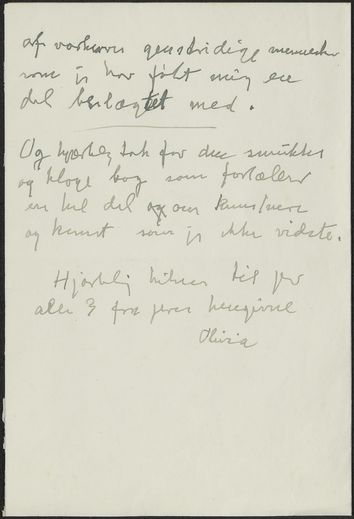 af voksne genstridige mennesker
som jeg har følt mig en
del beslægtet med.
Og hjertelig tak for den smukke
og kloge bog som fortæller
en hel del og om kunstnere
og kunst som jeg ikke vidste.
Hjertelig hilsen til jer
alle 3 fra jeres hengivne
Olivia